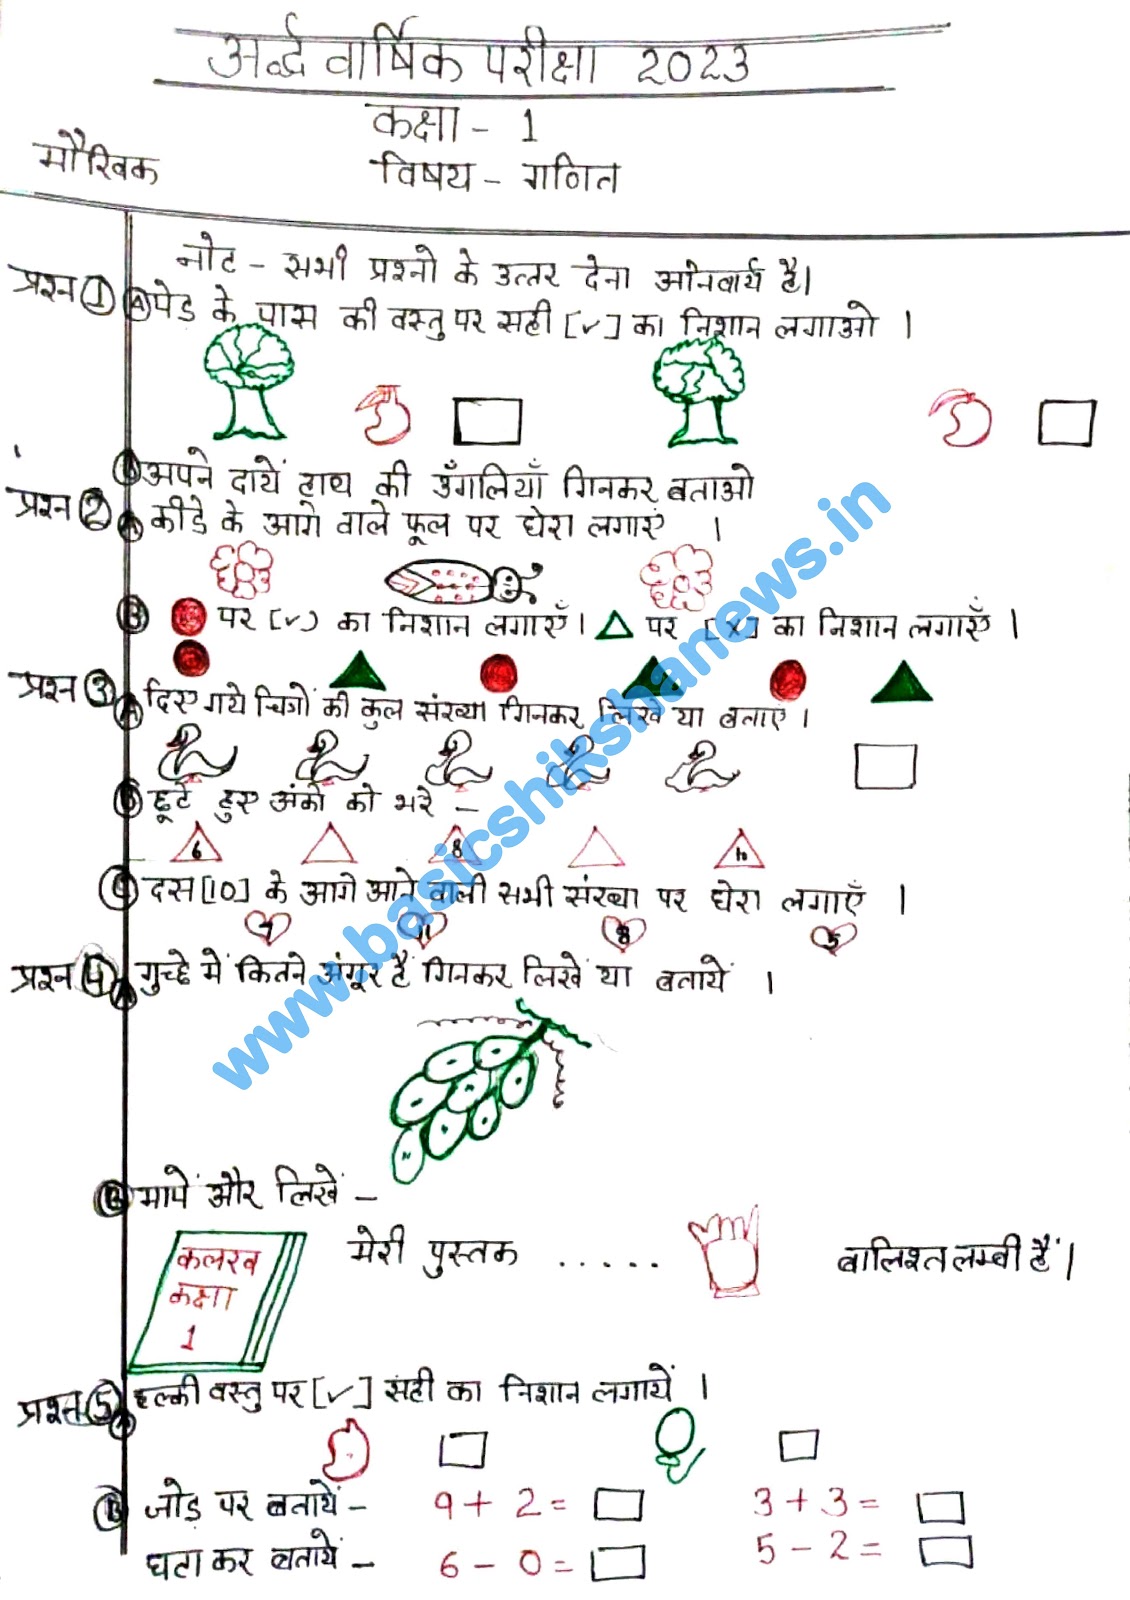 अर्द्ध वार्षिक परीक्षा 2023
कक्षा - 1
मौखिक
विषय - गणित
नोट - सभी प्रश्नो के उत्तर देना अनिवार्य है।
प्रश्न 1 A पेड के पास की वस्तु पर सही [✓] का निशान लगाओ ।
B अपने दायें हाथ की उँगलियाँ गिनकर बताओ
प्रश्न 2 A कीडे के आगे वाले फूल पर घेरा लगाएं ।
B पर [✓) का निशान लगाएँ। पर [X] का निशान लगाएँ ।
प्रश्न 3 A दिए गये चित्रों की कुल संख्या गिनकर लिखे या बताएं ।
B छूटे हुए अंको को भरे -
6 8 10
C दस [10] के आगे आने वाली सभी संख्या पर घेरा लगाएँ ।
7 11 8 5
प्रश्न 4 A गुच्छे में कितने अंगूर हैं गिनकर लिखें या बतायें ।
B मापें और लिखें -
मेरी पुस्तक ..... बालिश्त लम्बी हैं।
कलरव
कक्षा
1
प्रश्न 5 A हल्की वस्तु पर [✓] सही का निशान लगायें ।
B जोड़ पर बतायें - 9 + 2 = 3 + 3 =
घटा कर बतायें - 6 - 0 = 5 - 2 =
www.basicshikshanews.in